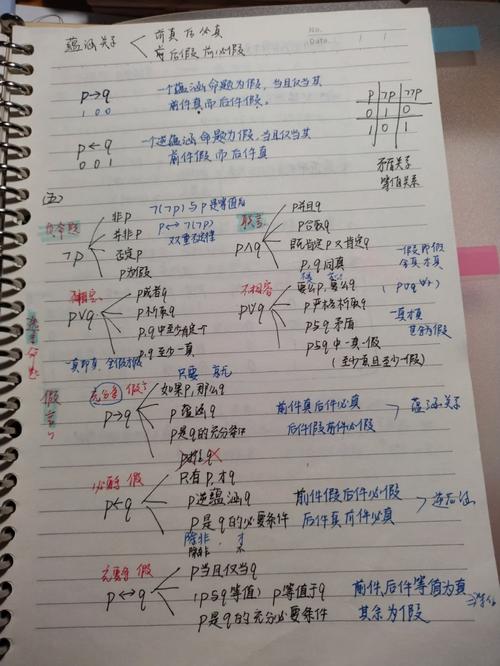 No.
Date
蕴涵关系
前真后必真
后假前必假
p→q
1 0 0
一个蕴涵命题为假,当且仅当其
前件真而后件假。
p←q
0 0 1
一个逆蕴涵命题为假,当且仅当其
前件假而后件真
p ¬p ¬¬p
0 1 0
1 0 1
矛盾关系
等值关系
(五)
负命题
¬p
非p
并非p
否定p
p为假
¬(¬p)与p是等值的
p↔¬(¬p)
双重否定律
联言
p∧q
p并且q
p合取q
既肯定p又肯定q
p,q同真
一假即假
全真才真
不相容
要么p,要么q
p严格析取q
p与q矛盾
p与q中一真一假
(至少一真且至少一假)
相容
p∨q
p或者q
p析取q
p,q中至少有一个
p,q至少一真
一真即真,全假才假
选言命题
假言
充分条件 假言
p→q
只要 就
如果p,那么q
p蕴涵q
p是q的充分条件
前件真后件必真
后件假前件必假
蕴涵关系
必要条件 假
p←q
只有p,才q
p逆蕴涵q
p是q的必要条件
除非 才
除非 不
前件假后件必假
后件真前件必真
逆蕴涵
充要条件 假
p↔q
p当且仅当q
(p与q等值) p等值于q
p是q的充分必要条件
前件,后件等值为真
其余为假